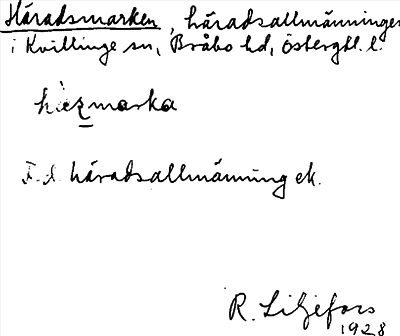 Häradsmarken, häradsallmänningen
i Kvillinge sn, Bråbo hd, Östergtl. l.
hæ̀ʐmarka
F. d. häradsallmänning ek.
R. Liljefors
1928